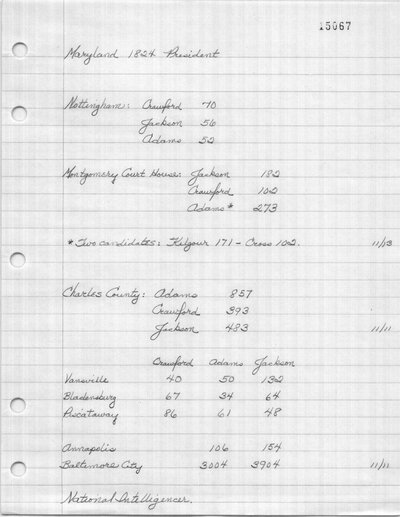 15067
Maryland 1824 President
Nottingham: Crawford 70
Jackson 56
Adams 52
Montgomery Court House: Jackson 182
Crawford 102
Adams* 273
* Two candidates: Kilgour 171 - Cross 102. 11/13
Charles County: Adams 857
Crawford 393
Jackson 483 11/11
Crawford Adams Jackson
Vansville 40 50 132
Bladensburg 67 34 64
Piscataway 86 61 48
Annapolis 106 154
Baltimore City 3004 3904 11/11
National Intelligencer.